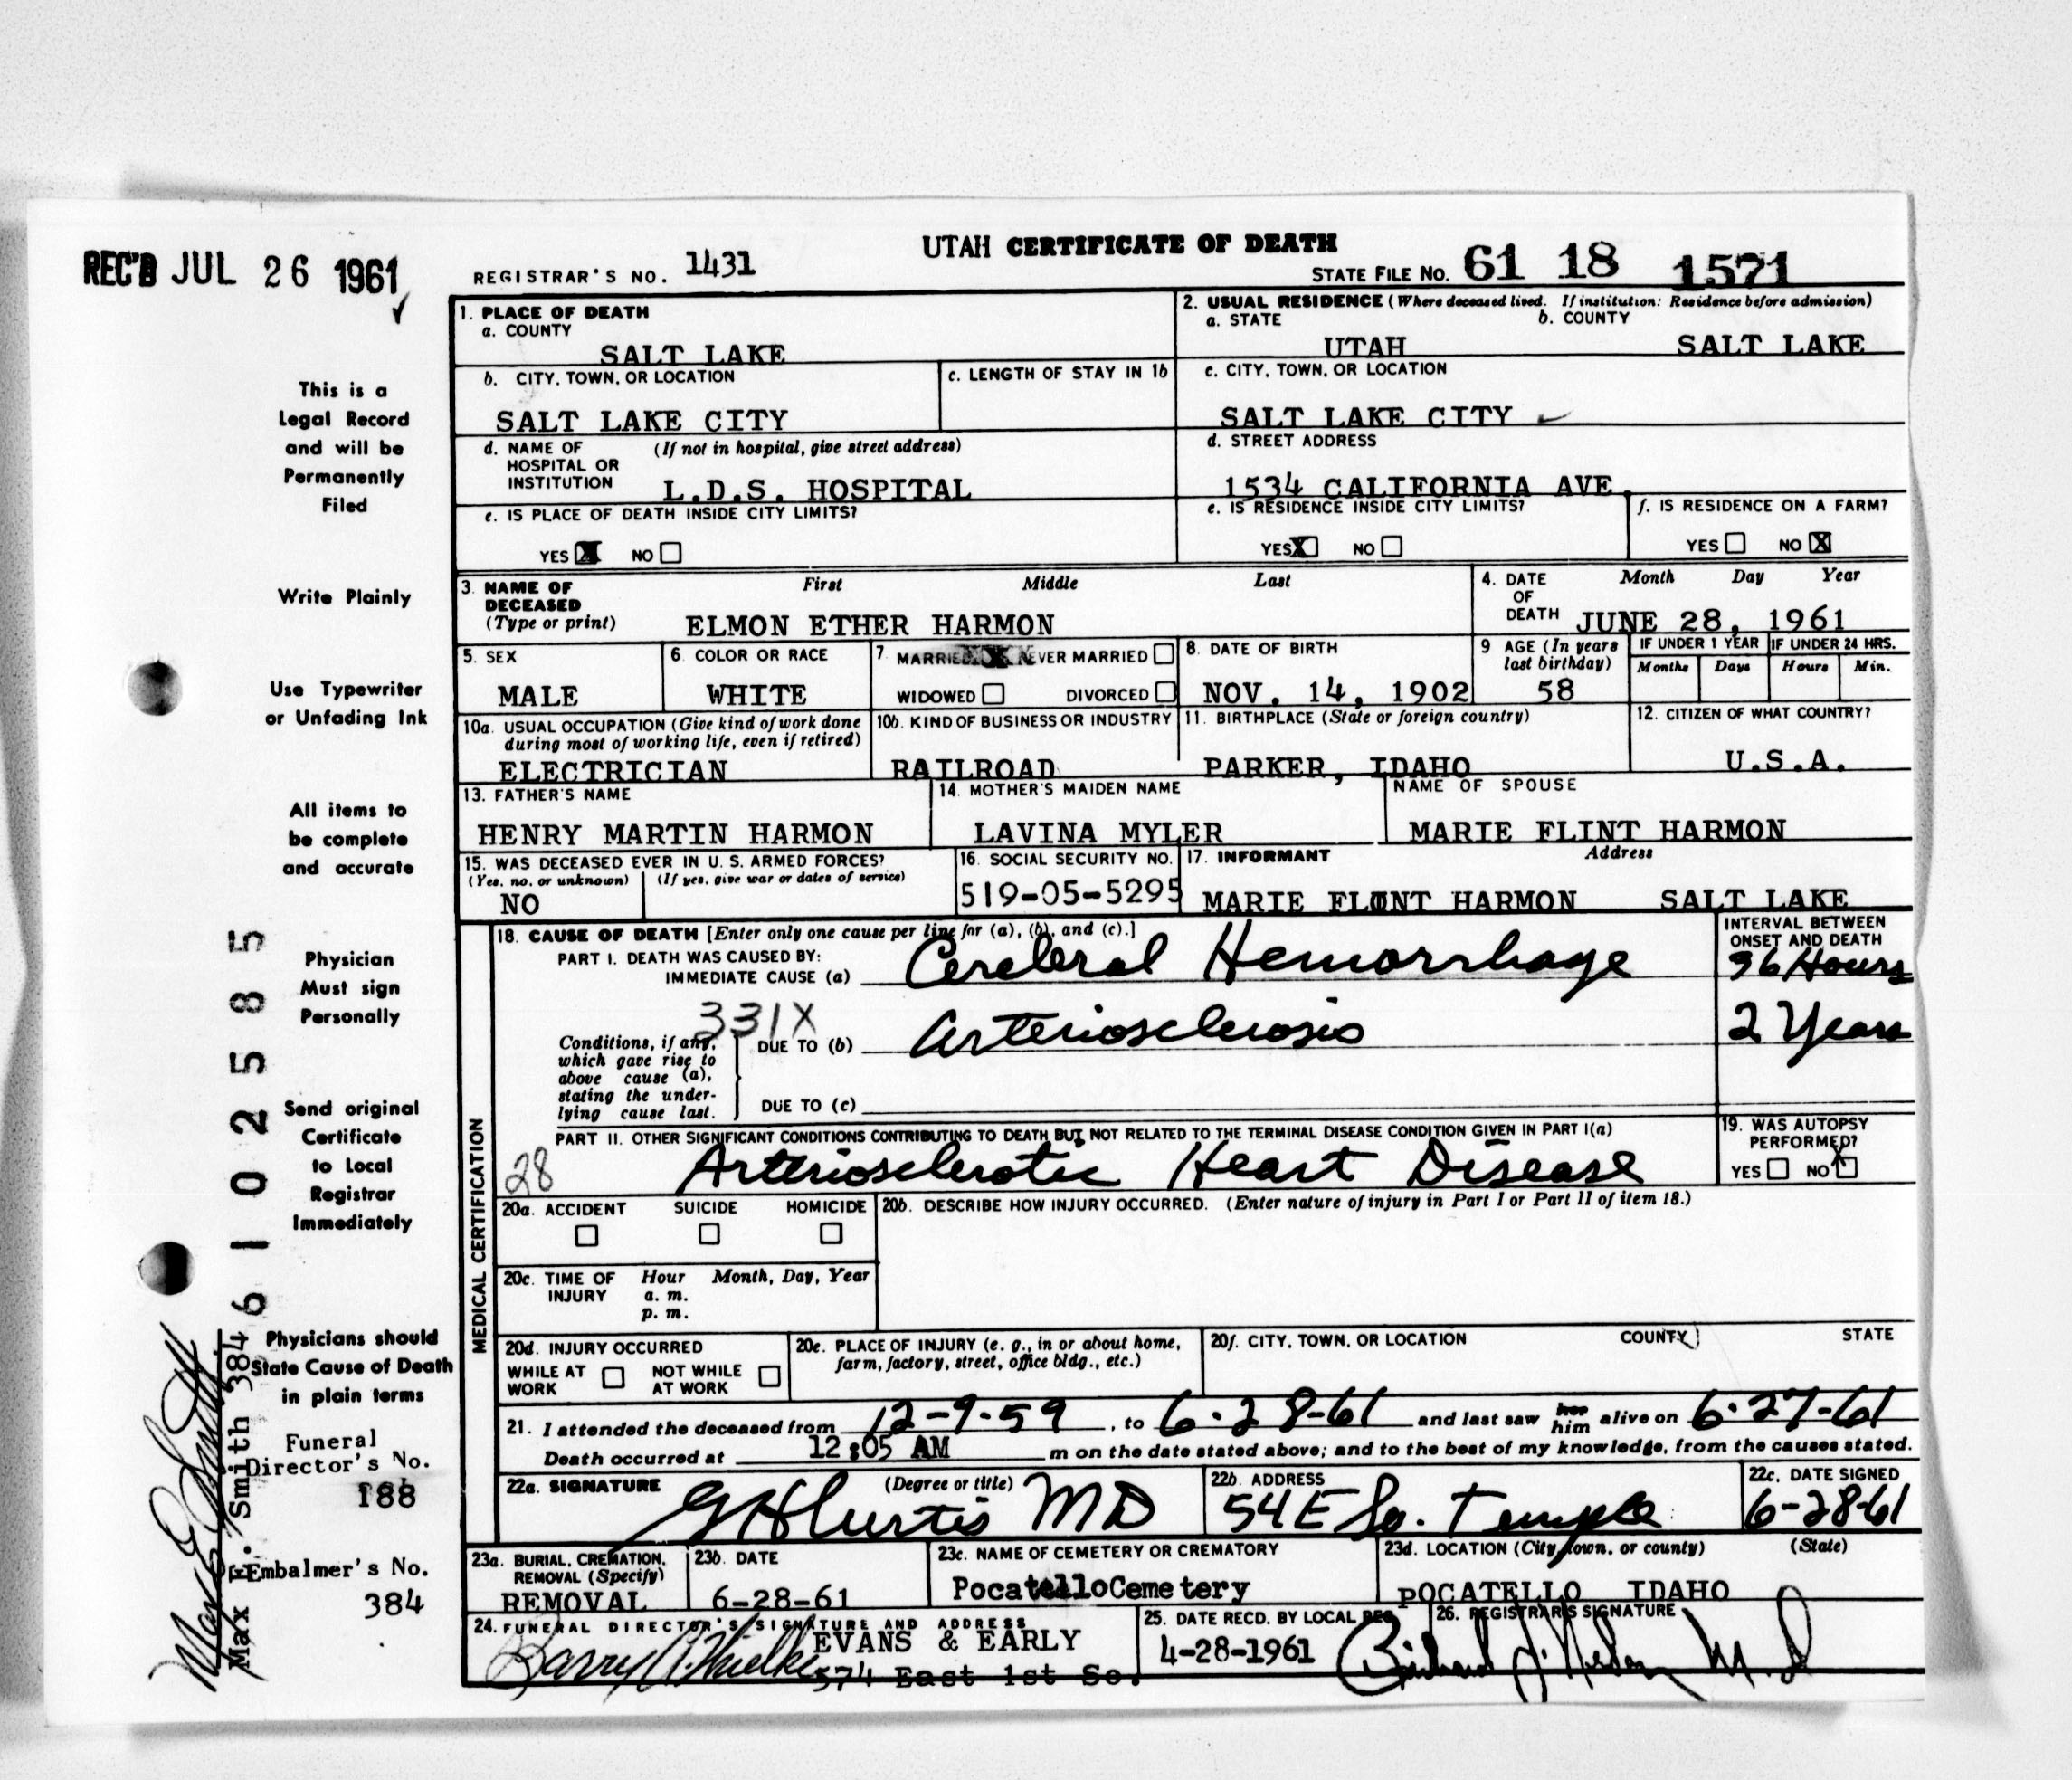 UTAH CERTIFICATE OF DEATH
REC'D JUL 26 1961
REGISTRAR'S NO. 1431
STATE FILE NO. 61 18 1571
1. PLACE OF DEATH
a. COUNTY
SALT LAKE
b. CITY, TOWN, OR LOCATION
SALT LAKE CITY
c. LENGTH OF STAY IN 1b
d. NAME OF HOSPITAL OR INSTITUTION (If not in hospital, give street address)
L.D.S. HOSPITAL
e. IS PLACE OF DEATH INSIDE CITY LIMITS?
YES X NO
2. USUAL RESIDENCE (Where deceased lived. If institution: Residence before admission)
a. STATE
UTAH
b. COUNTY
SALT LAKE
c. CITY, TOWN, OR LOCATION
SALT LAKE CITY
d. STREET ADDRESS
1534 CALIFORNIA AVE.
e. IS RESIDENCE INSIDE CITY LIMITS?
YES X NO
f. IS RESIDENCE ON A FARM?
YES NO X
3. NAME OF DECEASED (Type or print)
First Middle Last
ELMON ETHER HARMON
4. DATE OF DEATH
Month Day Year
JUNE 28, 1961
5. SEX
MALE
6. COLOR OR RACE
WHITE
7. MARRIED X NEVER MARRIED
WIDOWED DIVORCED
8. DATE OF BIRTH
NOV. 14, 1902
9 AGE (In years last birthday)
58
IF UNDER 1 YEAR
Months Days
IF UNDER 24 HRS.
Hours Min.
10a. USUAL OCCUPATION (Give kind of work done during most of working life, even if retired)
ELECTRICIAN
10b. KIND OF BUSINESS OR INDUSTRY
RAILROAD
11. BIRTHPLACE (State or foreign country)
PARKER, IDAHO
12. CITIZEN OF WHAT COUNTRY?
U.S.A.
13. FATHER'S NAME
HENRY MARTIN HARMON
14. MOTHER'S MAIDEN NAME
LAVINA MYLER
NAME OF SPOUSE
MARIE FLINT HARMON
15. WAS DECEASED EVER IN U. S. ARMED FORCES?
(Yes, no, or unknown) (If yes, give war or dates of service)
NO
16. SOCIAL SECURITY NO.
519-05-5295
17. INFORMANT Address
MARIE FLINT HARMON SALT LAKE
MEDICAL CERTIFICATION
18. CAUSE OF DEATH [Enter only one cause per line for (a), (b), and (c).]
PART I. DEATH WAS CAUSED BY:
IMMEDIATE CAUSE (a) Cerebral Hemorrhage
331X
Conditions, if any, which gave rise to above cause (a), stating the underlying cause last.
DUE TO (b) Arteriosclerosis
DUE TO (c)
INTERVAL BETWEEN ONSET AND DEATH
96 Hours
2 Years
PART II. OTHER SIGNIFICANT CONDITIONS CONTRIBUTING TO DEATH BUT NOT RELATED TO THE TERMINAL DISEASE CONDITION GIVEN IN PART I(a)
28 Arteriosclerotic Heart Disease
19. WAS AUTOPSY PERFORMED?
YES NO X
20a. ACCIDENT SUICIDE HOMICIDE
20b. DESCRIBE HOW INJURY OCCURRED. (Enter nature of injury in Part I or Part II of item 18.)
20c. TIME OF INJURY Hour Month, Day, Year
a. m.
p. m.
20d. INJURY OCCURRED
WHILE AT WORK NOT WHILE AT WORK
20e. PLACE OF INJURY (e. g., in or about home, farm, factory, street, office bldg., etc.)
20f. CITY, TOWN, OR LOCATION COUNTY STATE
21. I attended the deceased from 12-9-59, to 6-28-61 and last saw her him alive on 6-27-61
Death occurred at 12:05 AM m on the date stated above; and to the best of my knowledge, from the causes stated.
22a. SIGNATURE (Degree or title)
G H Curtis MD
22b. ADDRESS
54 E So. Temple
22c. DATE SIGNED
6-28-61
23a. BURIAL, CREMATION, REMOVAL (Specify)
REMOVAL
23b. DATE
6-28-61
23c. NAME OF CEMETERY OR CREMATORY
Pocatello Cemetery
23d. LOCATION (City, town, or county) (State)
POCATELLO IDAHO
24. FUNERAL DIRECTOR'S SIGNATURE AND ADDRESS
EVANS & EARLY
574 East 1st So.
25. DATE RECD. BY LOCAL REG.
4-28-1961
26. REGISTRAR'S SIGNATURE
M.D
This is a
Legal Record
and will be
Permanently
Filed
Write Plainly
Use Typewriter
or Unfading Ink
All items to
be complete
and accurate
Physician
Must sign
Personally
Send original
Certificate
to Local
Registrar
Immediately
Physicians should
State Cause of Death
in plain terms
Funeral
Director's No.
188
Embalmer's No.
384
6 1 0 2 5 8 5
Max E. Smith
Max E. Smith 384